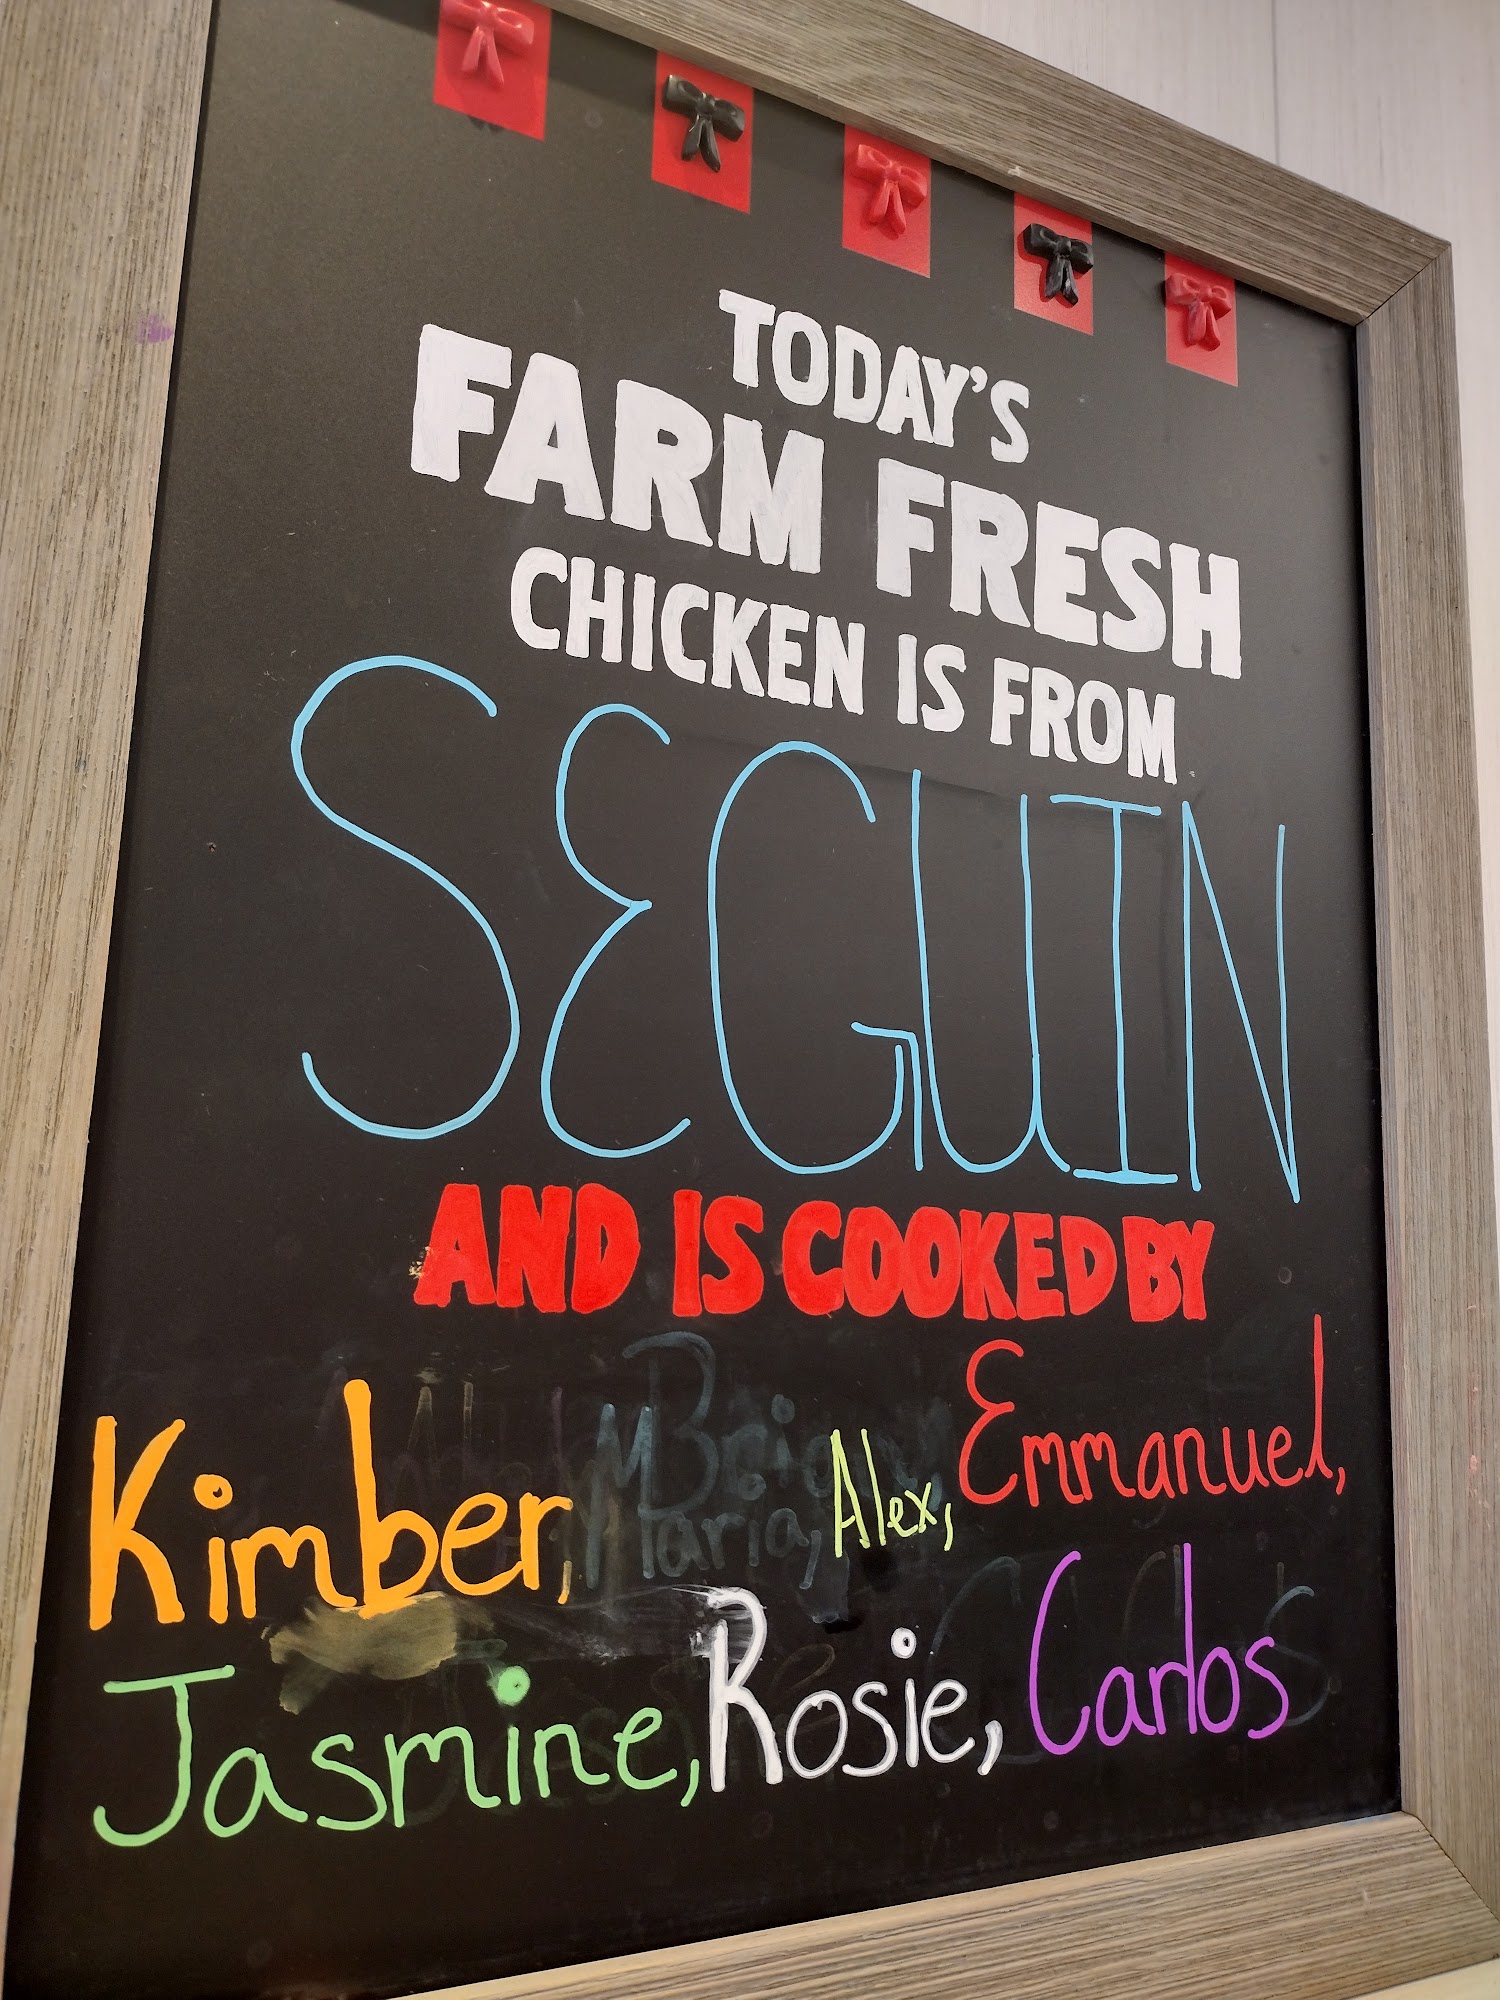 TODAY'S
FARM FRESH
CHICKEN IS FROM
SEGUIN
AND IS COOKED BY
Kimber, Maria, Alex, Emmanuel,
Jasmine, Rosie, Carlos